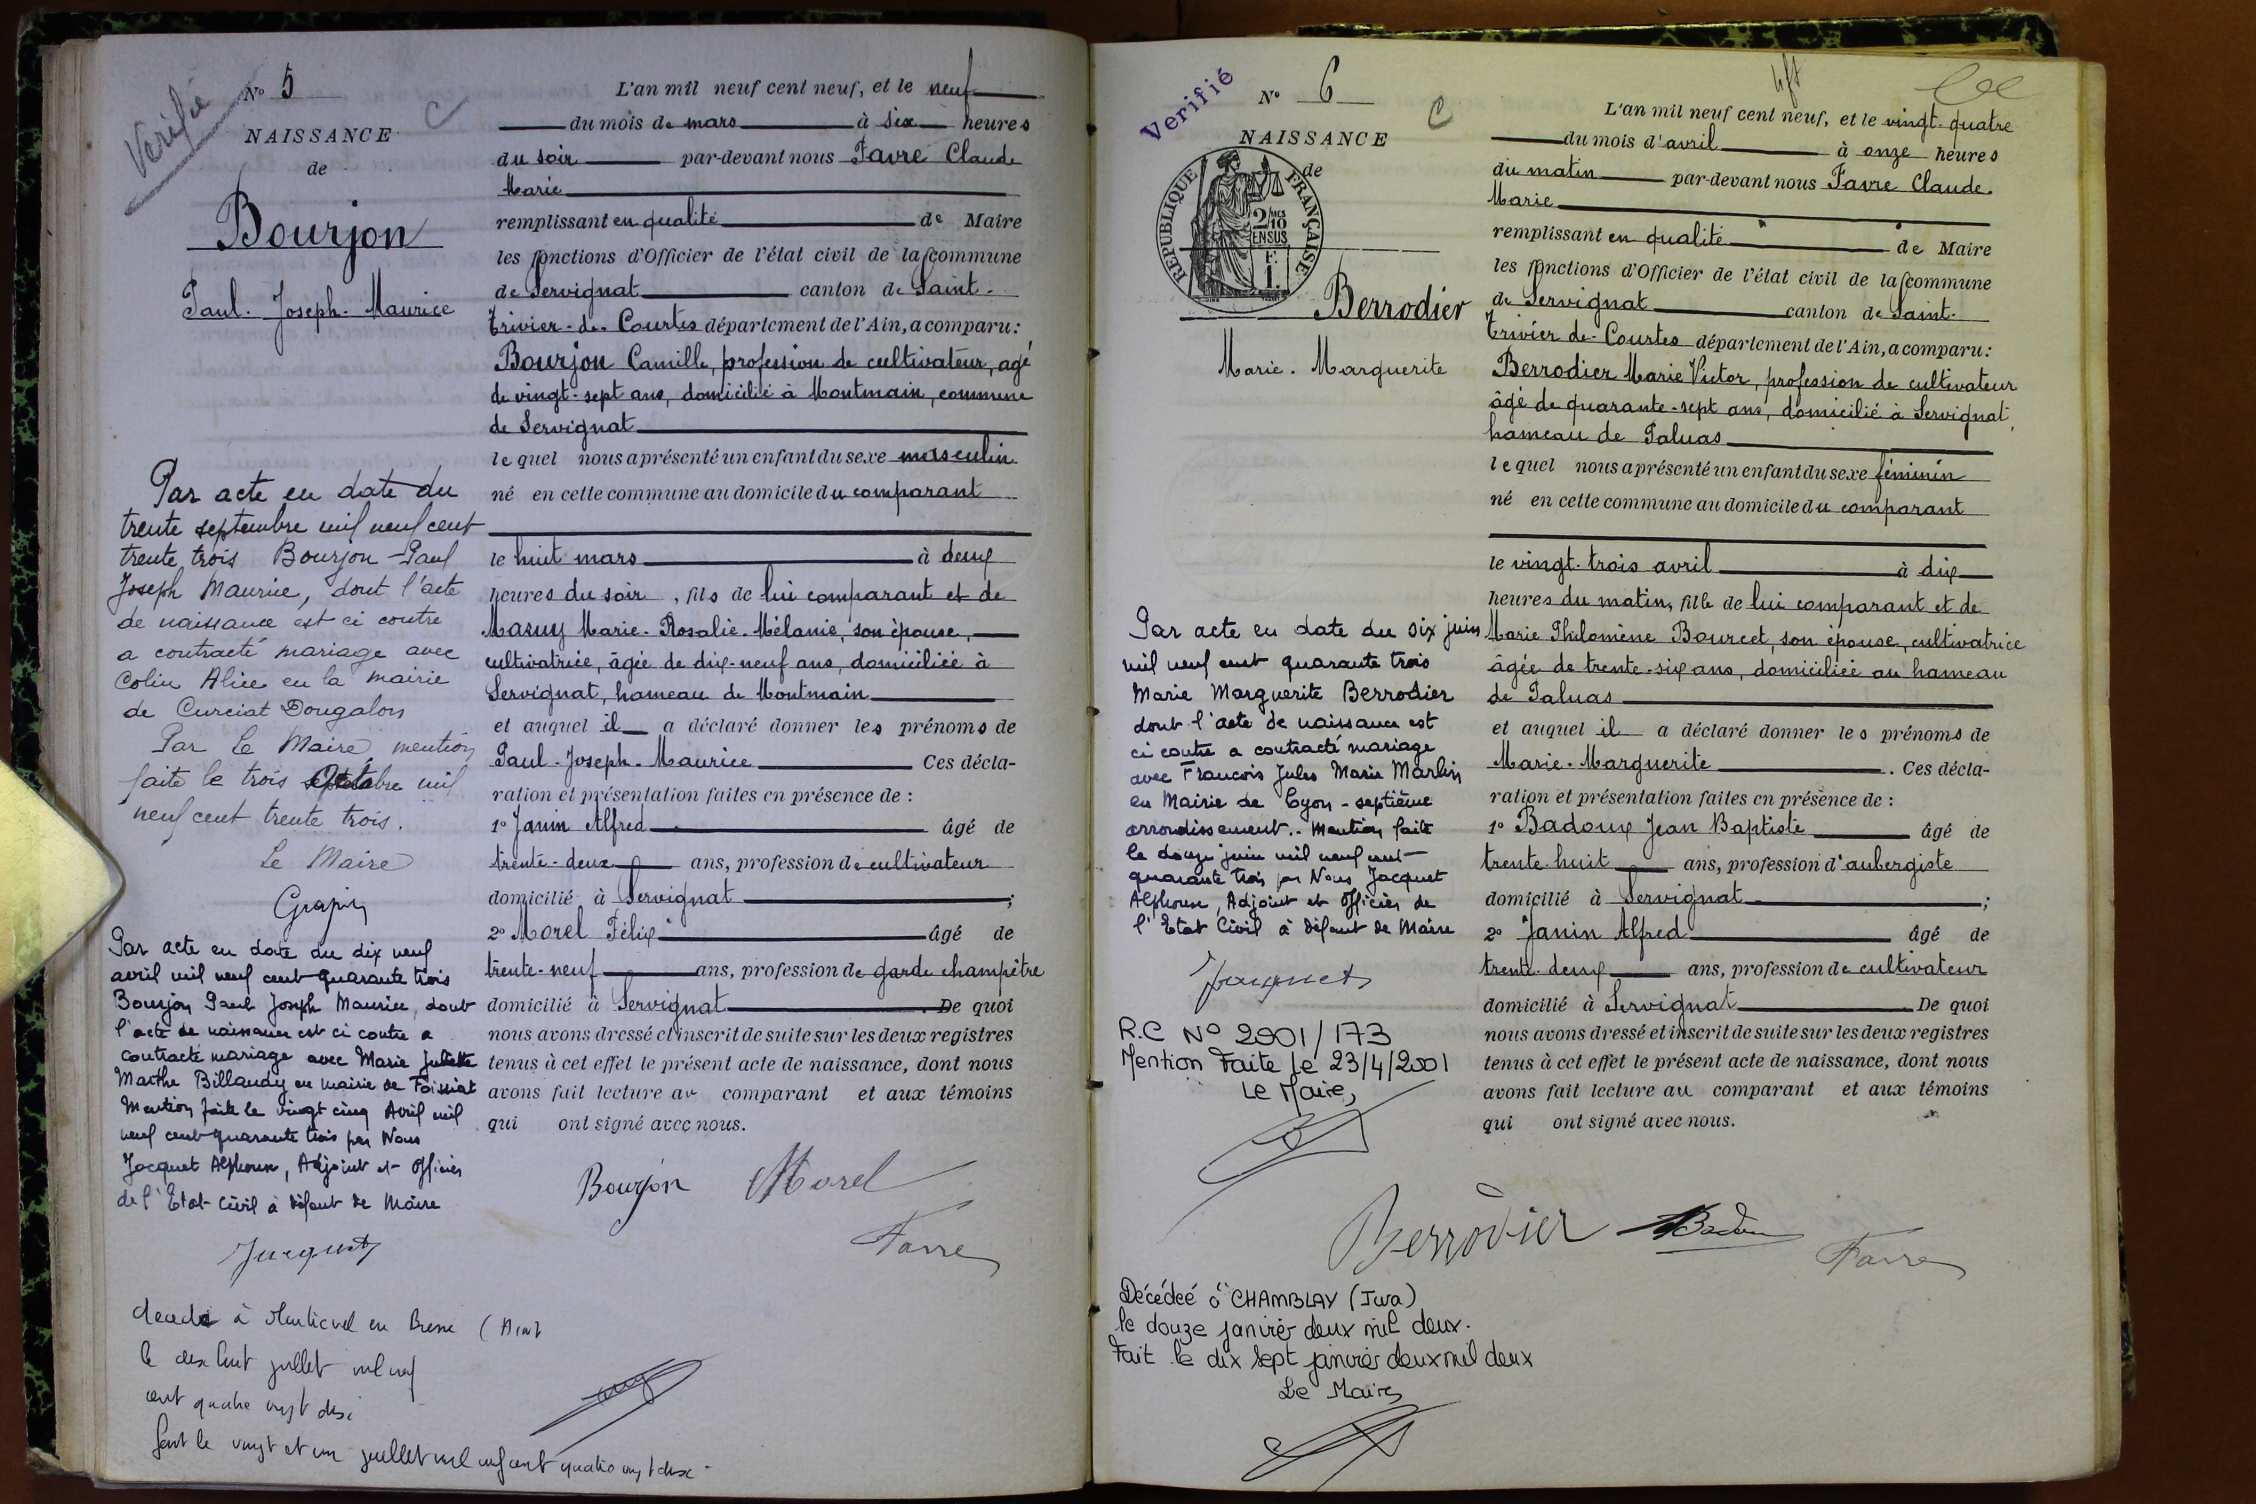 Verifié
Nº 5
C
NAISSANCE
de
Bourjon
Paul. Joseph. Maurice
L'an mil neuf cent neuf, et le neuf
du mois de mars à six heures
du soir par-devant nous Favre Claude
Marie
remplissant en qualité de Maire
les fonctions d'Officier de l'état civil de la commune
de Servignat canton de Saint.
Trivier-de-Courtes département de l'Ain, a comparu:
Bourjon Camille, profession de cultivateur, agé
de vingt-sept ans, domicilié à Montmain, commune
de Servignat
le quel nous a présenté un enfant du sexe masculin
né en cette commune au domicile du comparant
le huit mars à deux
heures du soir, fils de lui comparant et de
Masuy Marie-Rosalie-Mélanie, son épouse,
cultivatrice, âgée de dix-neuf ans, domiciliée à
Servignat, hameau de Montmain
et auquel il a déclaré donner les prénoms de
Paul-Joseph-Maurice Ces décla-
ration et présentation faites en présence de :
1º Janin Alfred âgé de
trente-deux ans, profession de cultivateur
domicilié à Servignat ;
2º Morel Félix âgé de
trente-neuf ans, profession de garde champêtre
domicilié à Servignat De quoi
nous avons dressé et inscrit de suite sur les deux registres
tenus à cet effet le présent acte de naissance, dont nous
avons fait lecture au comparant et aux témoins
qui ont signé avec nous.
Bourjon Morel
Favre
Par acte en date du
trente septembre mil neuf cent
trente trois Bourjon Paul
Joseph Maurice, dont l'acte
de naissance est ci contre
a contracté mariage avec
Colin Alice en la mairie
de Curciat Dongalon
Par le Maire, mention
faite le trois Octobre mil
neuf cent trente trois.
Le Maire
Grapin
Par acte en date du dix neuf
avril mil neuf cent quarante trois
Bourjon Paul Joseph Maurice, dont
l'acte de naissance est ci contre a
contracté mariage avec Marie Juliette
Marthe Billaudy en mairie de Foissiat
Mention faite le vingt cinq Avril mil
neuf cent quarante trois par Nous
Jacquet Alphonse, Adjoint et Officier
de l'Etat Civil à défaut de Maire
Jacquet
décédé à Montrevel en Bresse (Ain)
le dix huit juillet mil neuf
cent quatre vingt dix
fait le vingt et un juillet mil neuf cent quatre vingt dix
Verifié
Nº 6
C
NAISSANCE
de
RÉPUBLIQUE FRANÇAISE
2/10
EN SUS
F.
1.
Berrodier
Marie. Marguerite
L'an mil neuf cent neuf, et le vingt-quatre
du mois d'avril à onze heures
du matin par-devant nous Favre Claude
Marie
remplissant en qualité de Maire
les fonctions d'Officier de l'état civil de la commune
de Servignat canton de Saint-
Trivier-de-Courtes département de l'Ain, a comparu:
Berrodier Marie Victor, profession de cultivateur
âgé de quarante-sept ans, domicilié à Servignat,
hameau de Paluas
le quel nous a présenté un enfant du sexe féminin
né en cette commune au domicile du comparant
le vingt-trois avril à dix
heures du matin, fille de lui comparant et de
Marie Philomène Bourcet, son épouse, cultivatrice
âgée de trente-six ans, domiciliée au hameau
de Paluas
et auquel il a déclaré donner les prénoms de
Marie-Marguerite . Ces décla-
ration et présentation faites en présence de :
1º Badoux Jean Baptiste âgé de
trente-huit ans, profession d'aubergiste
domicilié à Servignat ;
2º Janin Alfred âgé de
trente-deux ans, profession de cultivateur
domicilié à Servignat De quoi
nous avons dressé et inscrit de suite sur les deux registres
tenus à cet effet le présent acte de naissance, dont nous
avons fait lecture au comparant et aux témoins
qui ont signé avec nous.
Berrodier Badoux Favre
Par acte en date du six juin
mil neuf cent quarante trois
Marie Marguerite Berrodier
dont l'acte de naissance est
ci contre a contracté mariage
avec François Jules Marie Marlin
en Mairie de Lyon - septième
arrondissement.. Mention faite
le douze juin mil neuf cent
quarante trois par Nous Jacquet
Alphonse, Adjoint et Officier de
l'Etat Civil à défaut de Maire
Jacquet
R.C Nº 2001/173
Mention Faite le 23/4/2001
Le Maire,
Décédée à CHAMBLAY (Jura)
le douze janvier deux mil deux.
Fait le dix sept janvier deux mil deux
Le Maire,